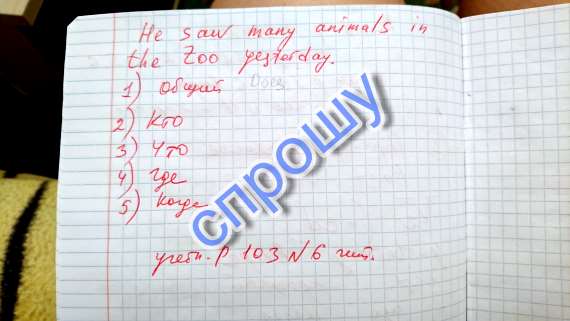 He saw many animals in
the Zoo yesterday.
1) Общий Does
2) Кто
3) Что
4) Где
5) Когда
спрошу
учебн. р 103 N 6 чит.